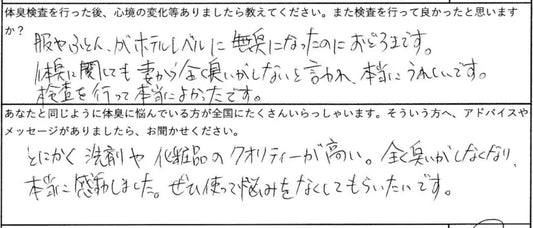 体臭検査を行った後、心境の変化等ありましたら教えてください。また検査を行って良かったと思います
か？
服やふとん、がホテルレベルに無臭になったのにおどろきです。
体臭に関しても妻から全く臭いがしないと言われ、本当にうれしいです。
検査を行って本当によかったです。
あなたと同じように体臭に悩んでいる方が全国にたくさんいらっしゃいます。そういう方へ、アドバイスや
メッセージがありましたら、お聞かせください。
とにかく洗剤や化粧品のクオリティーが高い。全く臭いがしなくなり、
本当に感動しました。ぜひ使って悩みをなくしてもらいたいです。